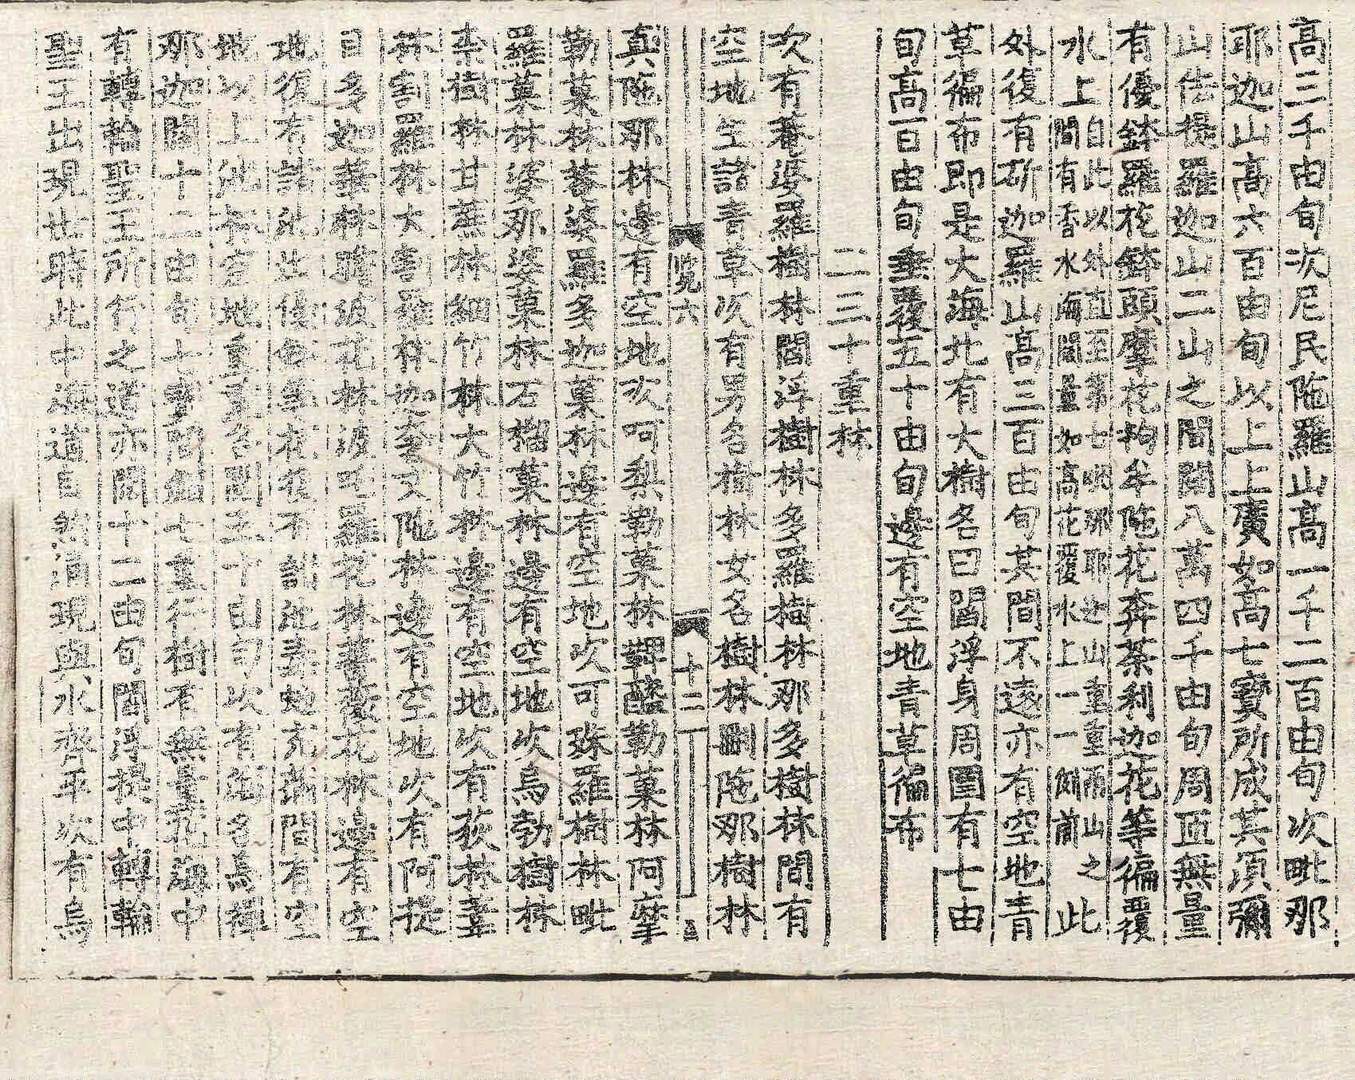 高三千由旬次尼民陁羅山高一千二百由旬次毗那
耶迦山高六百由旬以上上廣如高七寶所成其頂彌
山佉提羅迦山二山之間闊八萬四千由旬周匝無量
有優鉢羅花鉢頭摩花拘牟陁花奔荼利迦花等徧覆
水上自此以外直至第七毗那耶迦山重重兩山之
間有香水海闊量如高花覆水上一一倒前此
外復有斫迦羅山高三百由旬其間不遠亦有空地青
草徧布即是大海北有大樹名曰閻浮身周圍有七由
旬高百由旬垂覆五十由旬邊有空地青草徧布
二三十重林
次有菴婆羅樹林閻浮樹林多羅樹林那多樹林間有
空地生諸青草次有男名樹林女名樹林刪陁那樹林
覽六 十二
真陁那林邊有空地次呵梨勒菓林鞞醯勒菓林阿摩
勒菓林菴婆羅多迦菓林邊有空地次可殊羅樹林毗
羅菓林婆那婆菓林石榴菓林邊有空地次烏勃樹林
柰樹林甘蔗林細竹林大竹林邊有空地次有荻林葦
林割羅林大割羅林迦奢文陁林邊有空地次有阿提
目多迦華林瞻波花林波吒羅花林薔薇花林邊有空
地復有諸池 優鉢羅花 毒蛇充滿間有空
地以上 空地 五十由旬次有海名烏禪
那迦闊十二由旬七寶 七重行樹 無量 海中
有轉輪聖王所行之道亦闊十二由旬閻浮提中轉輪
聖王出現世時此中海道自然涌現與水齊平次有烏